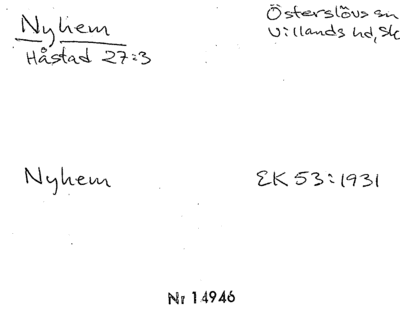 Nyhem
Håstad 27:3
Österslövs sn
Villands hd, Sk
Nyhem
EK 53:1931
Nr 14946